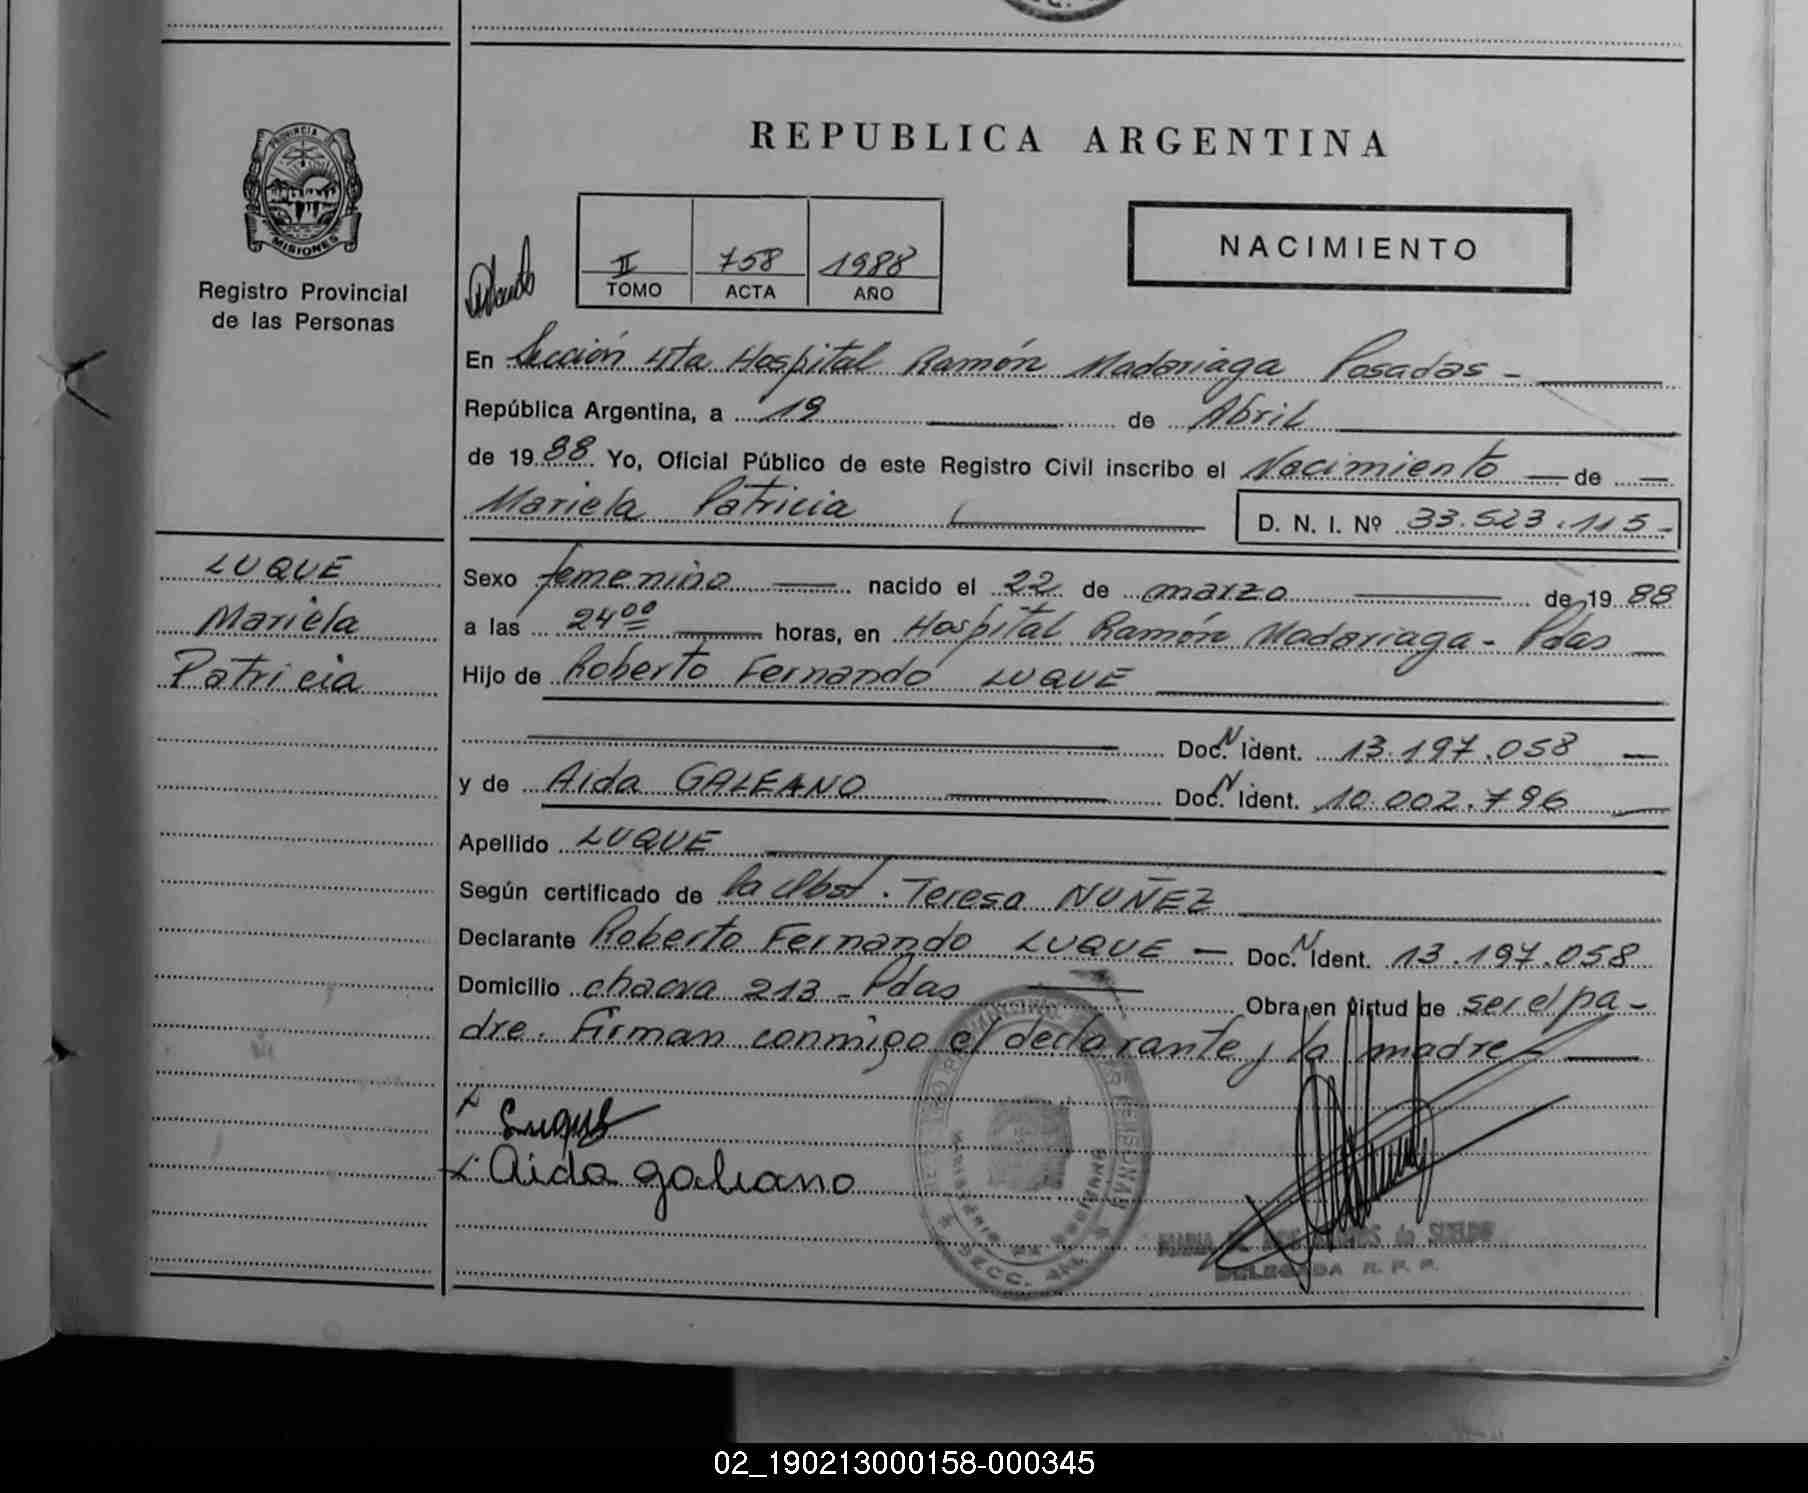 REPUBLICA ARGENTINA
PROVINCIA DE
MISIONES
Registro Provincial
de las Personas
II 758 1988
TOMO ACTA AÑO
NACIMIENTO
En Sección 4ta Hospital Ramón Madariaga Posadas -
República Argentina, a 19 de Abril
de 1988 Yo, Oficial Público de este Registro Civil inscribo el Nacimiento de
Mariela Patricia D. N. I. Nº 33.523.115-
LUQUE
Mariela
Patricia
Sexo femenino nacido el 22 de marzo de 1988
a las 24⁰⁰ horas, en Hospital Ramón Madariaga - Pdas
Hijo de Roberto Fernando LUQUE
Doc. N Ident. 13.197.058
y de Aida GALEANO Doc. N Ident. 10.002.796
Apellido LUQUE
Según certificado de la Obst. Teresa NUÑEZ
Declarante Roberto Fernando LUQUE - Doc. N Ident. 13.197.058
Domicilio chacra 213 - Pdas Obra en virtud de ser el pa-
dre. Firman conmigo el declarante y la madre
x Luque
x Aida galeano
SECC. 4ta.
DELEGADA R. P. P.
02_190213000158-000345